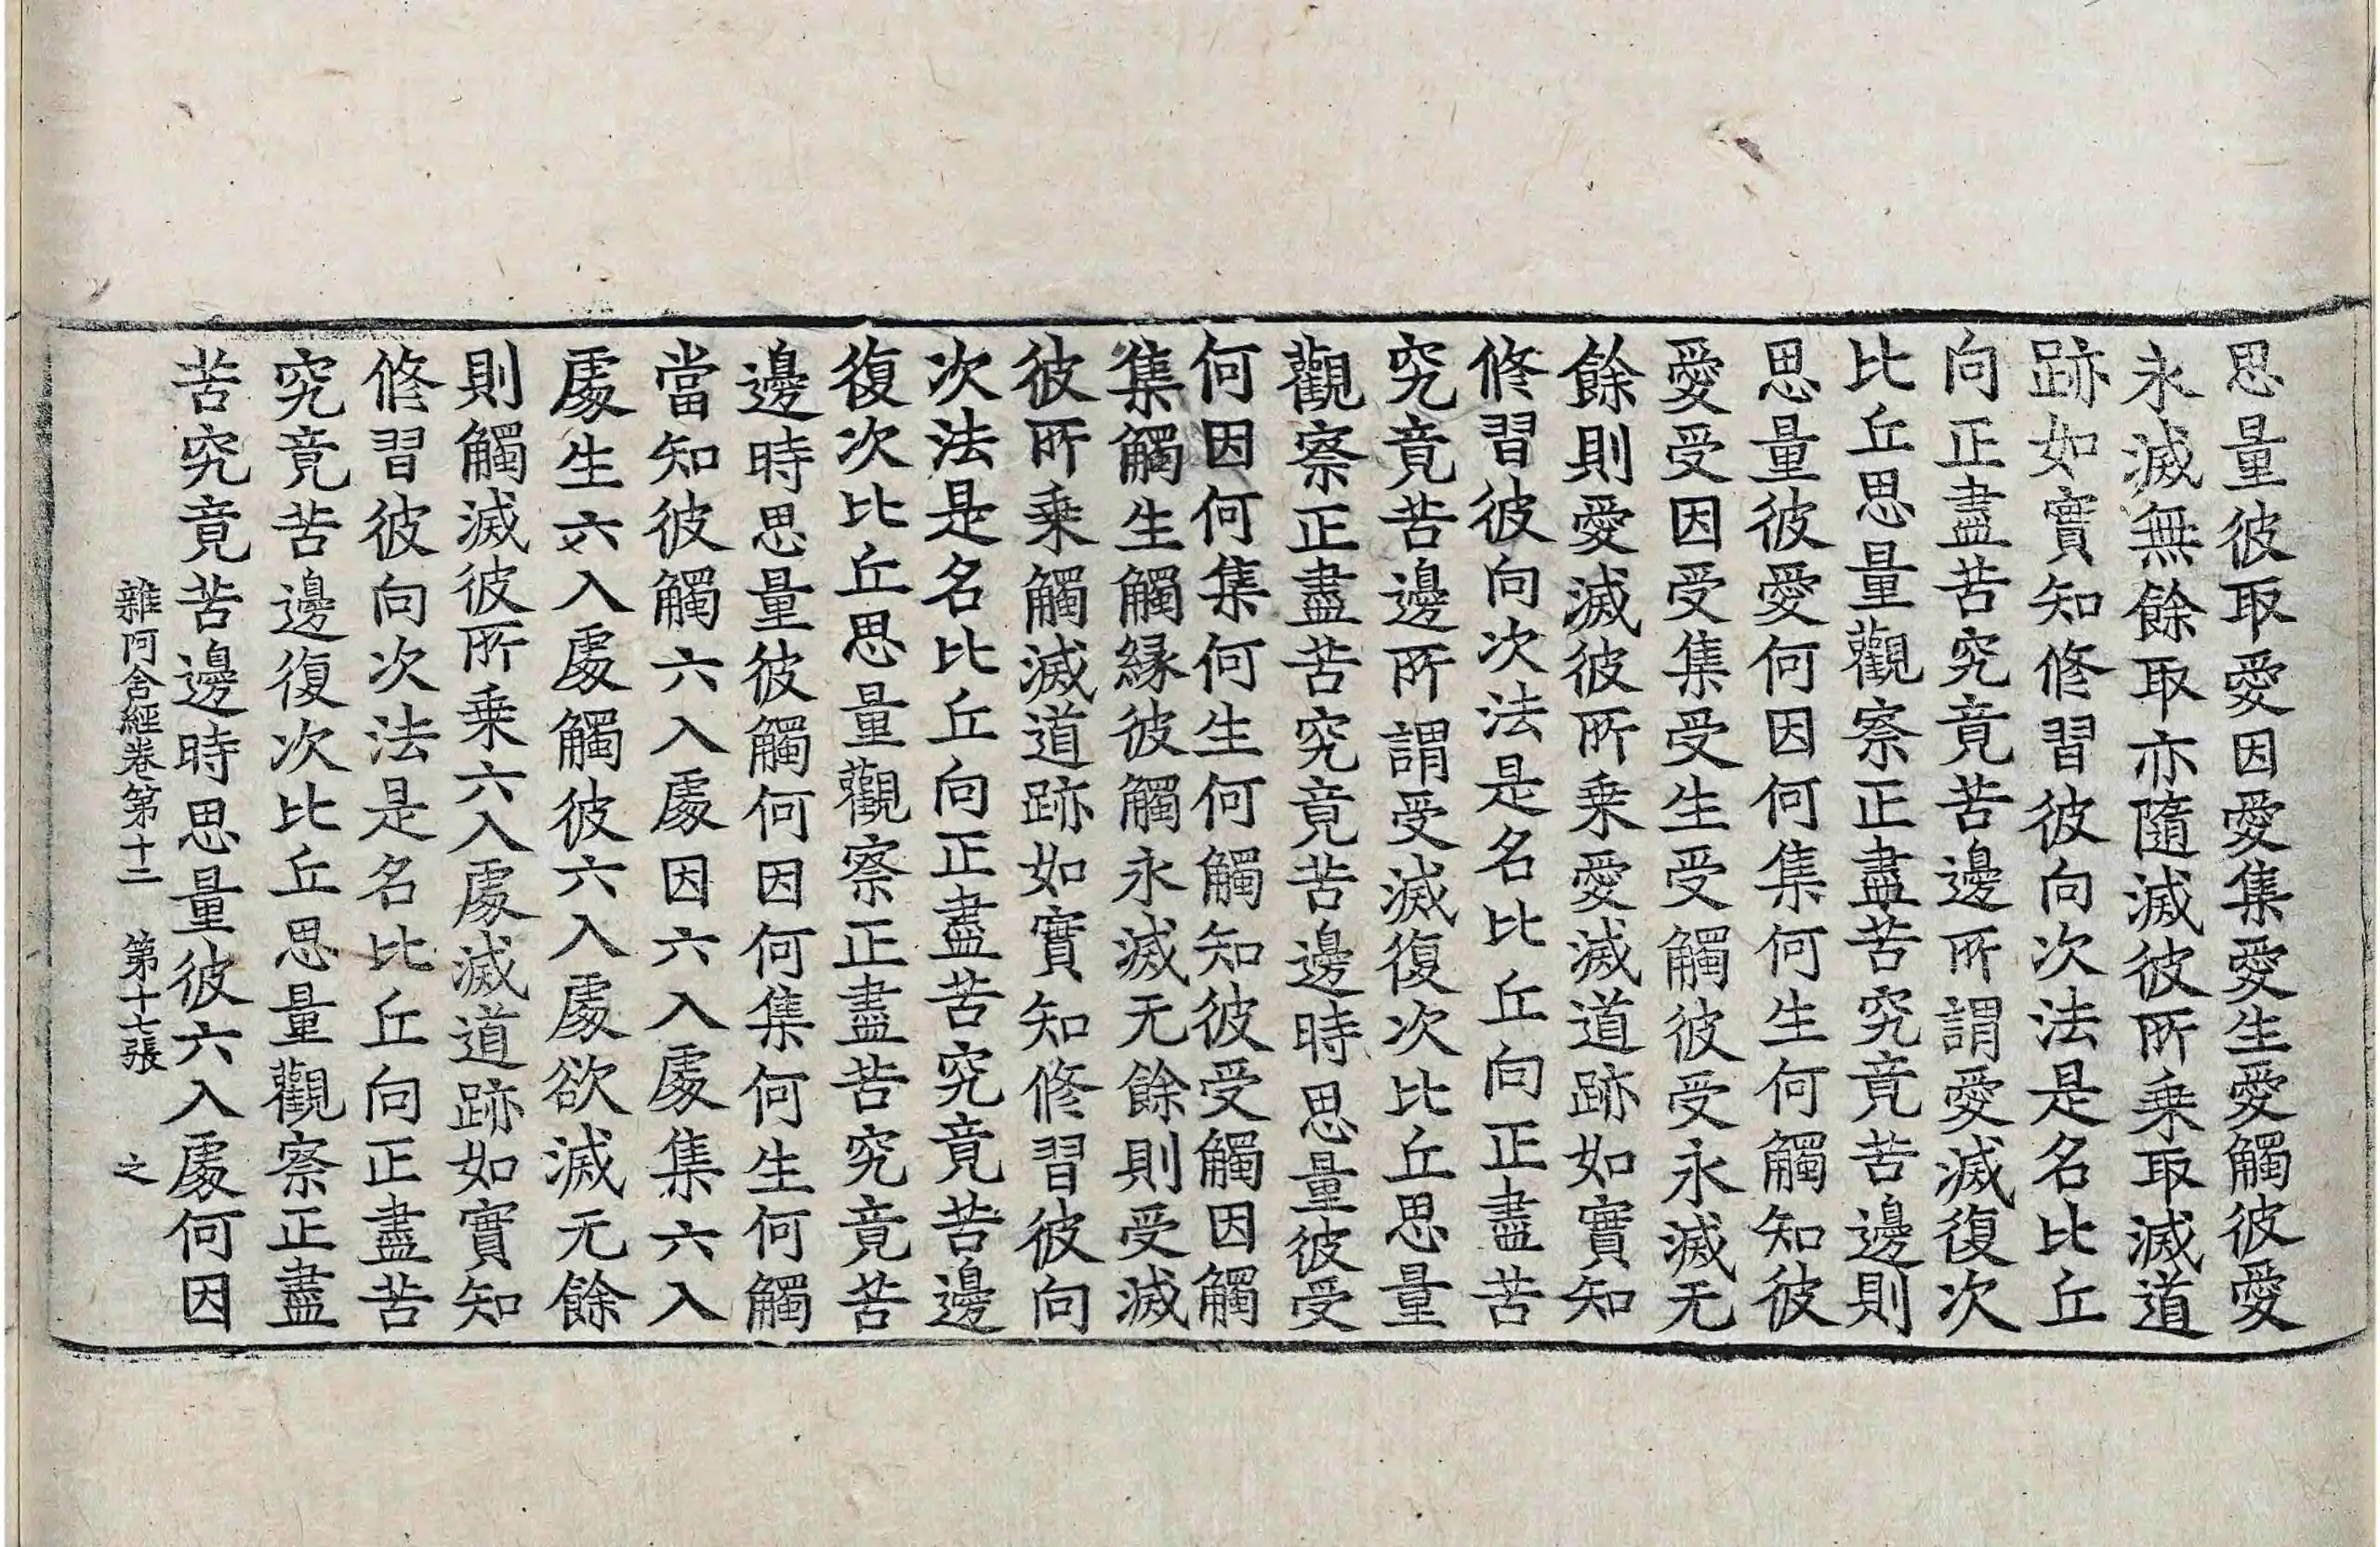 思量彼取愛因愛集愛生愛觸彼愛
永滅無餘取亦隨滅彼所乗取滅道
跡如實知修習彼向次法是名比丘
向正盡苦究竟苦邊所謂愛滅復次
比丘思量觀察正盡苦究竟苦邊則
思量彼愛何因何集何生何觸知彼
愛受因受集受生受觸彼受永滅无
餘則愛滅彼所乗愛滅道跡如實知
修習彼向次法是名比丘向正盡苦
究竟苦邊所謂受滅復次比丘思量
觀察正盡苦究竟苦邊時思量彼受
何因何集何生何觸知彼受觸因觸
集觸生觸縁彼觸永滅无餘則受滅
彼所乗觸滅道跡如實知修習彼向
次法是名比丘向正盡苦究竟苦邊
復次比丘思量觀察正盡苦究竟苦
邊時思量彼觸何因何集何生何觸
當知彼觸六入處因六入處集六入
處生六入處觸彼六入處欲滅无餘
則觸滅彼所乗六入處滅道跡如實知
修習彼向次法是名比丘向正盡苦
究竟苦邊復次比丘思量觀察正盡
苦究竟苦邊時思量彼六入處何因
雜阿含經卷第十二 第十七張 之